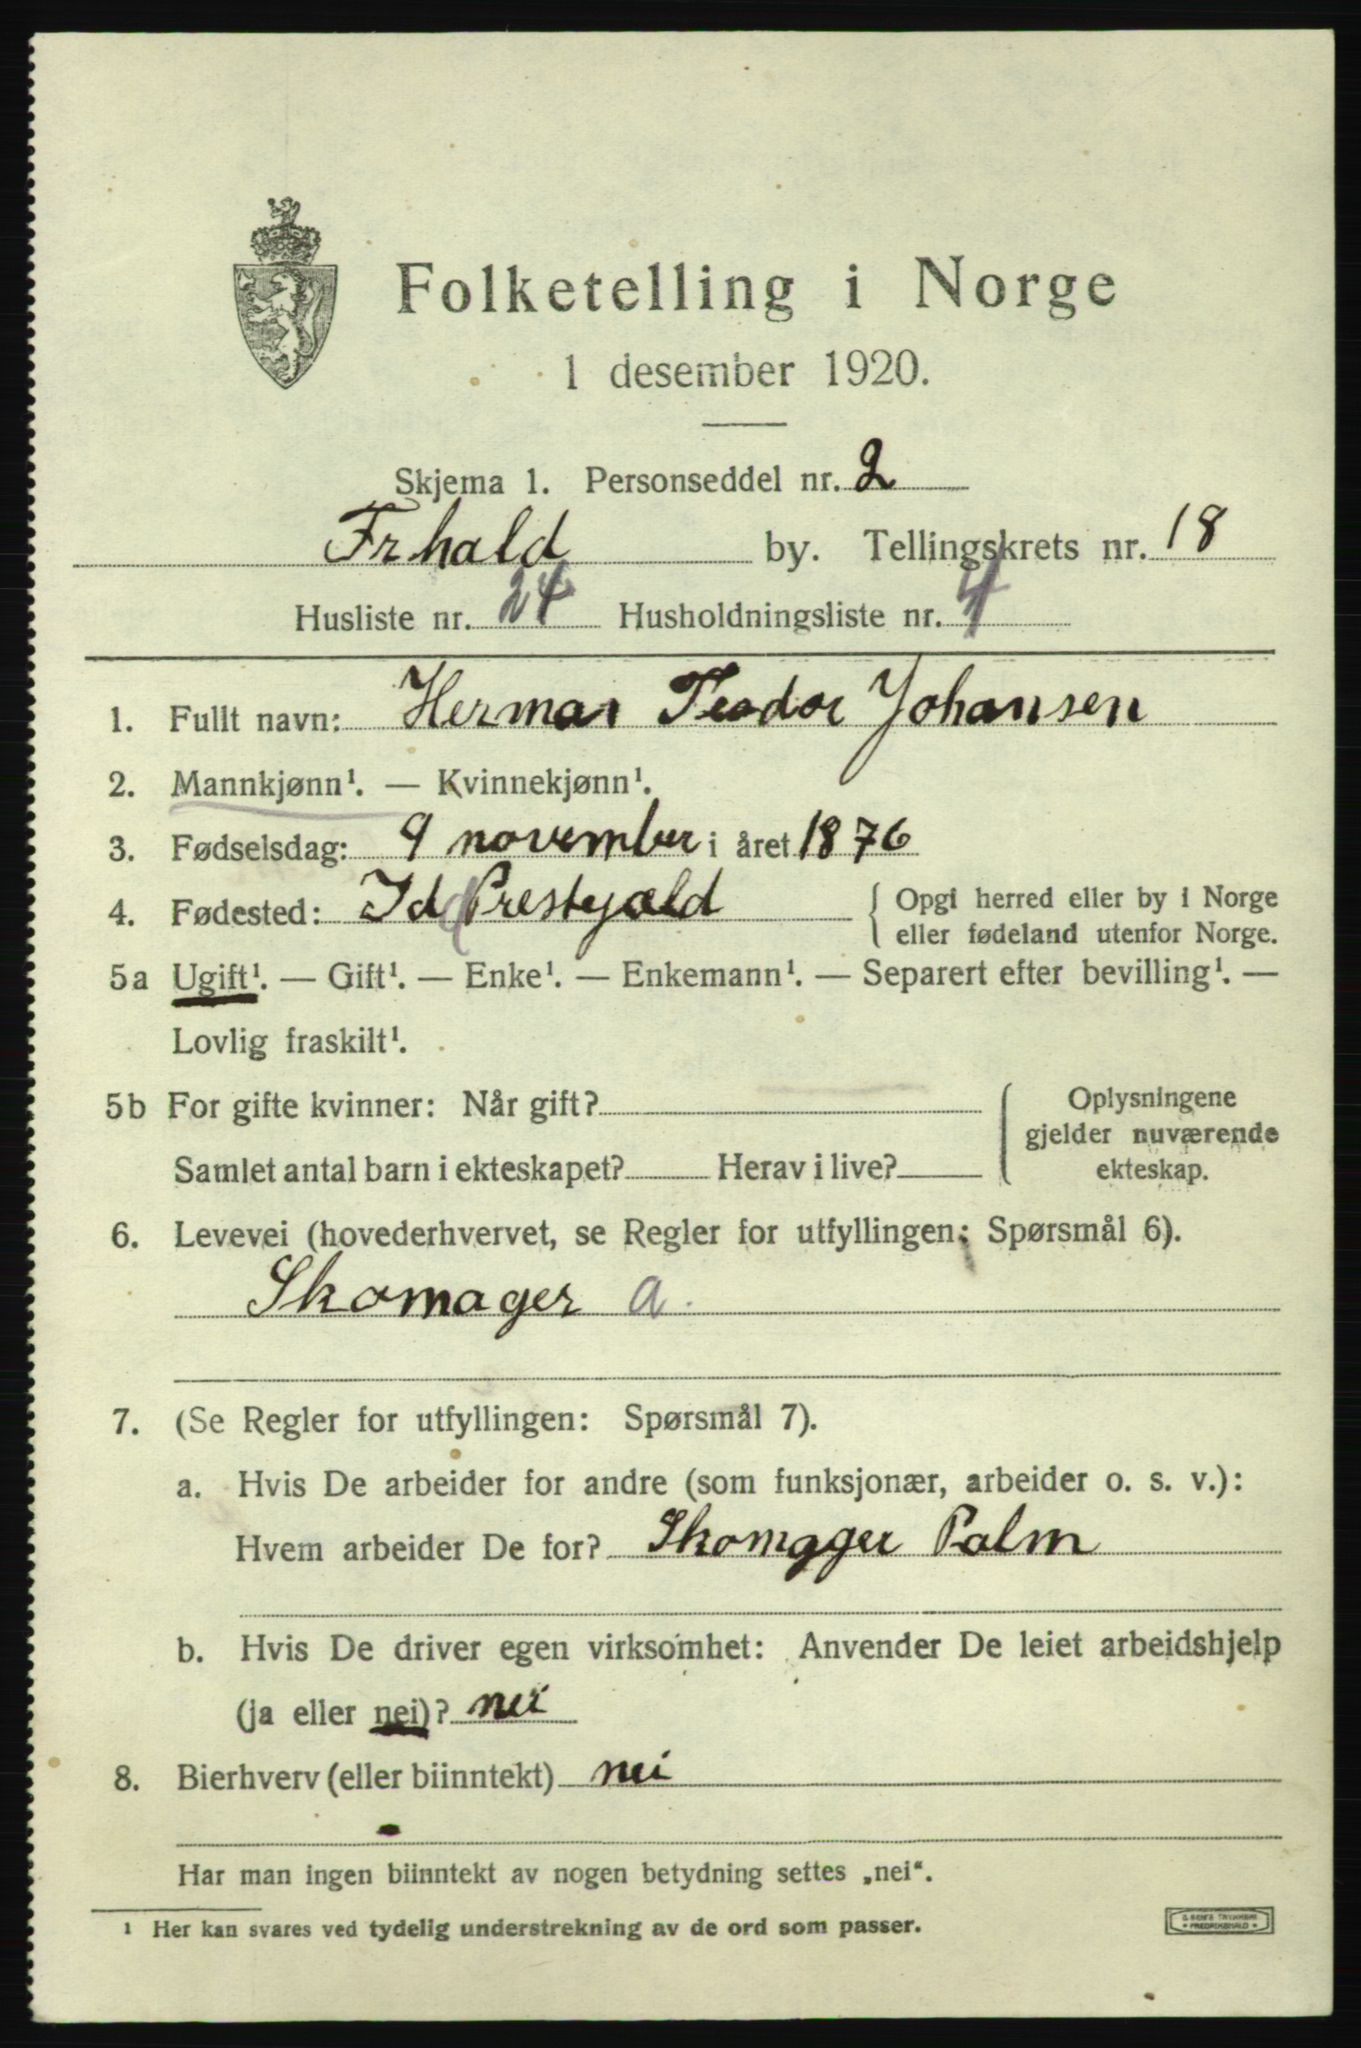 Folketelling i Norge
1 desember 1920.
Skjema 1. Personseddel nr. 2
Frhald by. Tellingskrets nr. 18
Husliste nr. 24 Husholdningsliste nr. 4
1. Fullt navn: Herman Teodor Johansen
2. Mannkjønn¹. — Kvinnekjønn¹.
3. Fødselsdag: 9 november i året 1876
4. Fødested: Id Prestgjæld { Opgi herred eller by i Norge
eller fødeland utenfor Norge.
5a Ugift¹. — Gift¹. — Enke¹. — Enkemann¹. — Separert efter bevilling¹. —
Lovlig fraskilt¹.
5b For gifte kvinner: Når gift? { Oplysningene
gjelder nuværende
Samlet antal barn i ekteskapet? Herav i live? ekteskap.
6. Levevei (hovederhvervet, se Regler for utfyllingen; Spørsmål 6).
Skomager a.
7. (Se Regler for utfyllingen: Spørsmål 7).
a. Hvis De arbeider for andre (som funksjonær, arbeider o. s. v.):
Hvem arbeider De for? Skomager Palm
b. Hvis De driver egen virksomhet: Anvender De leiet arbeidshjelp
(ja eller nei)? nei
8. Bierhverv (eller biinntekt) nei
Har man ingen biinntekt av nogen betydning settes „nei“.
¹ Her kan svares ved tydelig understrekning av de ord som passer.
FREDRIKSHALD